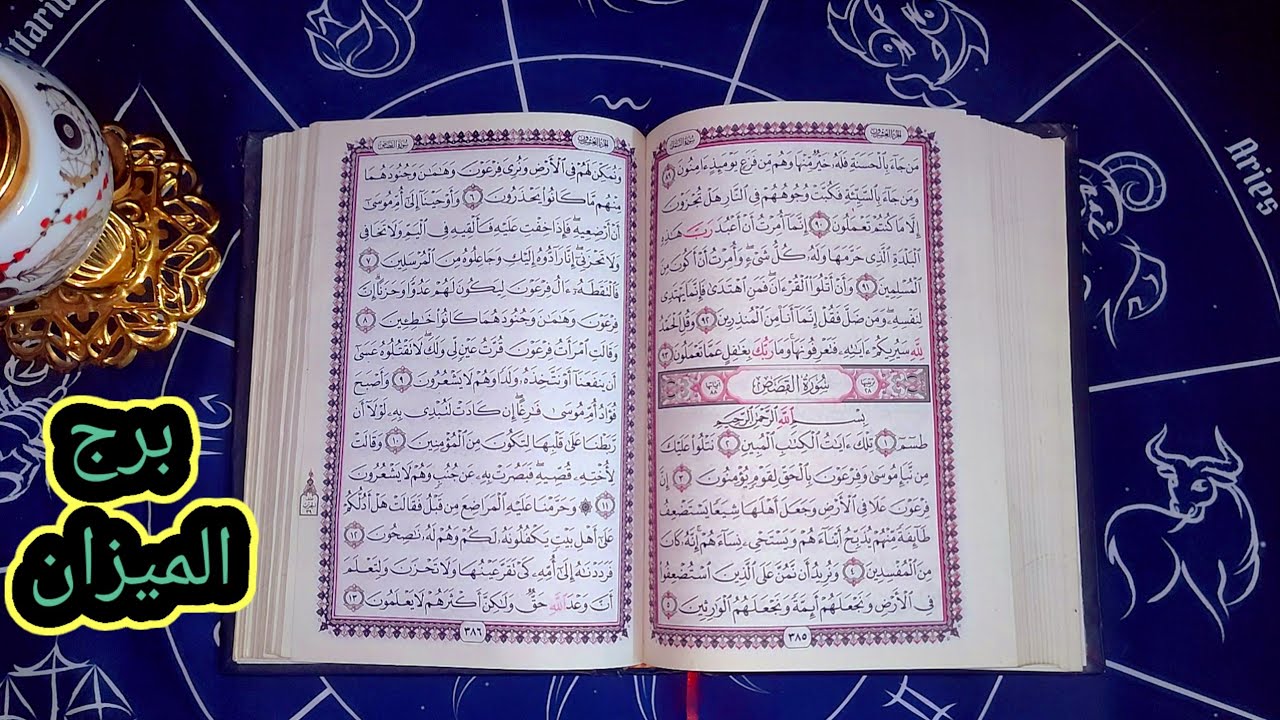 Sagittarius
Aries
برج
الميزان
الجزء العشرون
سورة النمل
من جاء بالحسنة فله خير منها وهم من فزع يومئذ ءامنون ٨٩
ومن جاء بالسيئة فكبت وجوههم في النار هل تجزون
إلا ما كنتم تعملون ٩٠ إنما أمرت أن أعبد رب هذه
البلدة الذي حرمها وله كل شيء وأمرت أن أكون من
المسلمين ٩١ وأن أتلوا القرءان فمن اهتدى فإنما يهتدي
لنفسه ومن ضل فقل إنما أنا من المنذرين ٩٢ وقل الحمد
لله سيريكم ءايته فتعرفونها وما ربك بغفل عما تعملون ٩٣
سورة القصص
بسم الله الرحمن الرحيم
طسم ١ تلك ءايت الكتب المبين ٢ نتلوا عليك
من نبإ موسى وفرعون بالحق لقوم يؤمنون ٣ إن
فرعون علا في الأرض وجعل أهلها شيعا يستضعف
طائفة منهم يذبح أبناءهم ويستحي نساءهم إنه كان
من المفسدين ٤ ونريد أن نمن على الذين استضعفوا
في الأرض ونجعلهم أئمة ونجعلهم الورثين ٥
٣٨٥
الجزء العشرون
سورة القصص
ونمكن لهم في الأرض ونري فرعون وهمن وجنودهما
منهم ما كانوا يحذرون ٦ وأوحينا إلى أم موسى
أن أرضعيه فإذا خفت عليه فألقيه في اليم ولا تخافي
ولا تحزني إنا رادوه إليك وجاعلوه من المرسلين ٧
فالتقطه ءال فرعون ليكون لهم عدوا وحزنا إن
فرعون وهمن وجنودهما كانوا خطين ٨
وقالت امرأت فرعون قرت عين لي ولك لا تقتلوه عسى
أن ينفعنا أو نتخذه ولدا وهم لا يشعرون ٩ وأصبح
فؤاد أم موسى فرغا إن كادت لتبدي به لولا أن
ربطنا على قلبها لتكون من المؤمنين ١٠ وقالت
لأخته قصيه فبصرت به عن جنب وهم لا يشعرون
١١ وحرمنا عليه المراضع من قبل فقالت هل أدلكم
على أهل بيت يكفلونه لكم وهم له نصحون ١٢
فرددنه إلى أمه كي تقر عينها ولا تحزن ولتعلم
أن وعد الله حق ولكن أكثرهم لا يعلمون ١٣
٣٨٦